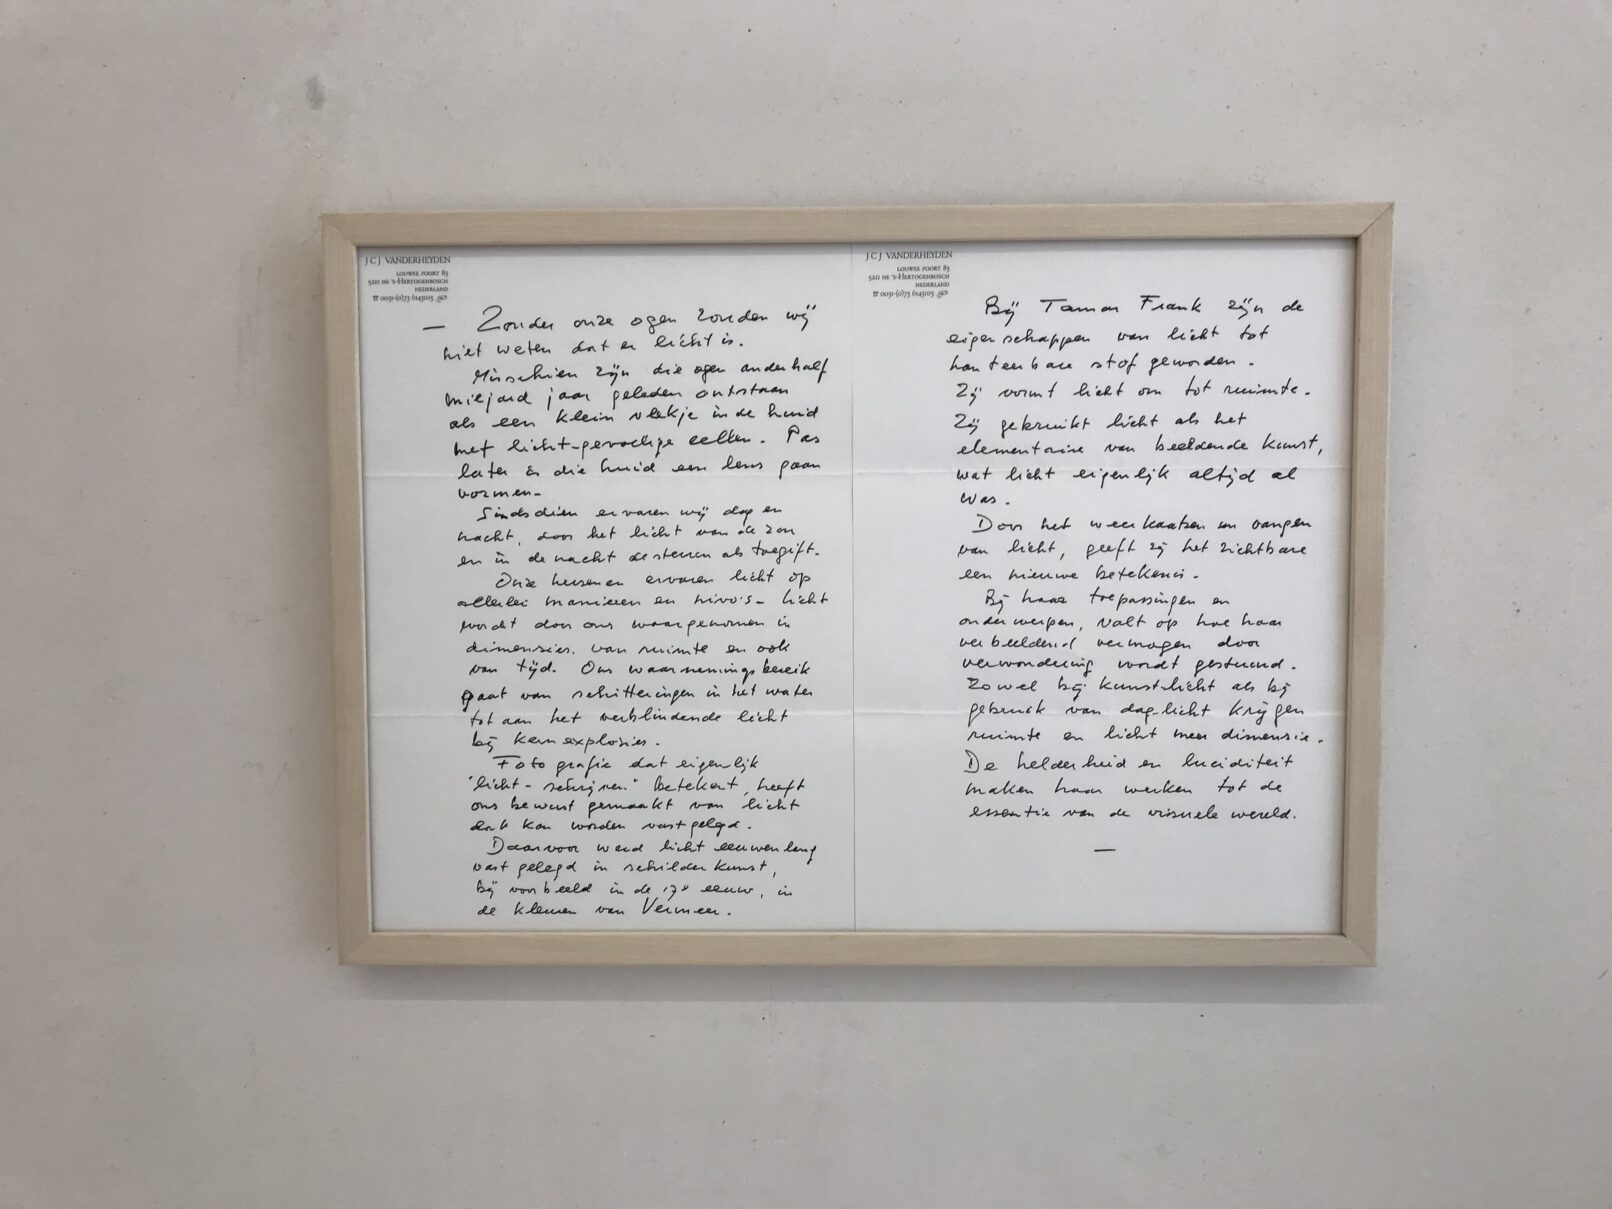 JCJ VANDERHEYDEN
LOUWSE POORT 83
5211 NE 's-HERTOGENBOSCH
NEDERLAND
☎ 0031-(0)73 6143103
— Zonder onze ogen zonden wij
niet weten dat er licht is.
Misschien zijn die ogen anderhalf
miljard jaar geleden ontstaan
als een klein vlekje in de huid
met licht-gevoelige cellen. Pas
later is die huid een lens gaan
vormen.
Sindsdien ervaren wij dag en
nacht, door het licht van de zon
en in de nacht de sterren als toegift.
Onze hersenen ervaren licht op
allerlei manieren en nivo's - licht
wordt door ons waargenomen in
dimensies van ruimte en ook
van tijd. Ons waarnemings bereik
gaat van schitteringen in het water
tot aan het verblindende licht
bij kernexplosies.
Fotografie dat eigenlijk
"licht-schrijven" betekent, heeft
ons bewust gemaakt van licht
dat kan worden vastgelegd.
Daarvoor werd licht eeuwenlang
vast gelegd in schilderkunst,
bij voorbeeld in de 17e eeuw, in
de kleuren van Vermeer.
JCJ VANDERHEYDEN
LOUWSE POORT 83
5211 NE 's-HERTOGENBOSCH
NEDERLAND
☎ 0031-(0)73 6143103
Bij Tamar Frank zijn de
eigenschappen van licht tot
hanteerbare stof geworden.
Zij vormt licht om tot ruimte.
Zij gebruikt licht als het
elementaire van beeldende kunst,
wat licht eigenlijk altijd al
was.
Door het weerkaatsen en vangen
van licht, geeft zij het zichtbare
een nieuwe betekenis.
Bij haar toepassingen en
onderwerpen, valt op hoe haar
verbeeldend vermogen door
verwondering wordt gestuurd.
Zowel bij kunst-licht als bij
gebruik van dag-licht krijgen
ruimte en licht meer dimensie.
De helderheid en luciditeit
maken haar werken tot de
essentie van de visuele wereld.
—